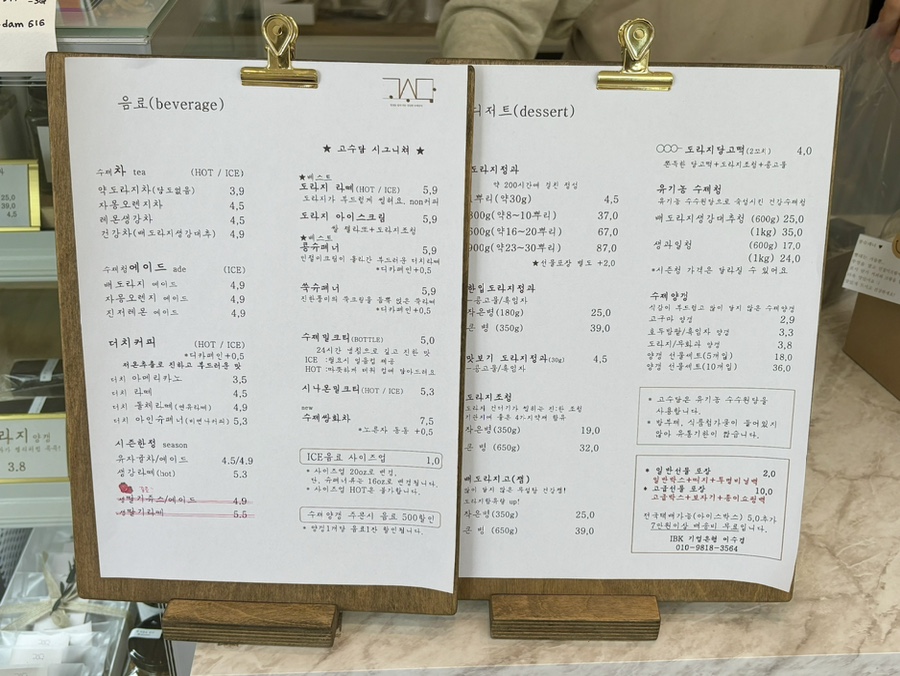 dam 616
음료(beverage)
수제차 tea (HOT / ICE)
약도라지차(당도없음) 3,9
자몽오렌지차 4,5
레몬생강차 4,5
건강차(배도라지생강대추) 4,9
수제청에이드 ade (ICE)
배도라지 에이드 4,9
자몽오렌지 에이드 4,9
진저레몬 에이드 4,9
더치커피 (HOT / ICE)
*디카페인+0,5
저온추출로 진하고 부드러운 맛
더치 아메리카노 3,5
더치 라떼 4,5
더치 돌체라떼(연유라떼) 4,9
더치 아인슈페너(비엔나커피) 5,3
시즌한정 season
유자귤차/에이드 4.5/4.9
생강라떼(hot) 5.3
생딸기쥬스/에이드 4.9
생딸기라떼 5.5
★ 고수달 시그니처 ★
★베스트
도라지 라떼(HOT / ICE) 5,9
도라지가 부드럽게 씹혀요. non커피
도라지 아이스크림 5,9
쌀 젤라또+도라지조청
★베스트
콩슈페너 5,9
인절미크림이 올라간 부드러운 더치라떼
*디카페인+0,5
쑥슈페너 5,9
*디카페인+0,5
수제밀크티(BOTTLE) 5,0
24시간 냉침으로 깊고 진한 맛
ICE :필요시 얼음컵 제공
HOT :따뜻하게 데워 컵에 담아드려요
시나몬밀크티(HOT / ICE) 5,3
new
수제쌍화차 7,5
*노른자 동동 +0,5
ICE음료 사이즈업 1,0
* 사이즈업 20oz로 변경.
단, 슈페너류는 16oz로 변경됩니다.
* 사이즈업 HOT은 불가합니다.
수제양갱 주문시 음료 500할인
* 양갱1개당 음료1잔 할인됩니다.
디저트(dessert)
도라지정과
약 200시간에 걸친 정성
1뿌리(약30g) 4,5
300g(약8~10뿌리) 37,0
600g(약16~20뿌리) 67,0
900g(약23~30뿌리) 87,0
★선물포장 별도 +2,0
한입도라지정과
-콩고물/흑임자
작은병(180g) 25,0
큰 병 (350g) 39,0
맛보기 도라지정과(30g) 4,5
-콩고물/흑임자
도라지조청
작은병(350g) 19,0
큰 병 (650g) 32,0
배도라지고(잼)
작은병(350g) 25,0
큰 병 (650g) 39,0
도라지당고떡(2꼬치) 4,0
쫀득한 당고떡+도라지조청+콩고물
유기농 수제청
유기농 수수원당으로 숙성시킨 건강청
배도라지생강대추청 (600g) 25,0
(1kg) 35,0
생과일청 (600g) 17,0
(1kg) 24,0
*시즌청 가격은 달라질 수 있어요
수제양갱
식감이 부드럽고 많이 달지 않은 수제양갱
고구마 양갱 2,9
호두밤팥/흑임자 양갱 3,3
도라지/무화과 양갱 3,8
양갱 선물세트(5개입) 18,0
양갱 선물세트(10개입) 36,0
* 고수달은 유기농 수수원당을
사용합니다.
* 방부제, 식품첨가물이 들어있지
않아 유통기한이 짧습니다.
* 일반선물 포장 2,0
일반박스+띠지+투명비닐백
* 고급선물 포장 10,0
고급박스+보자기+종이쇼핑백
전국택배가능(아이스박스) 5,0추가
7만원이상 배송비 무료입니다.
IBK 기업은행 이수경
010-9818-3564
라지 양갱
3.8
25,0
39,0
4.5